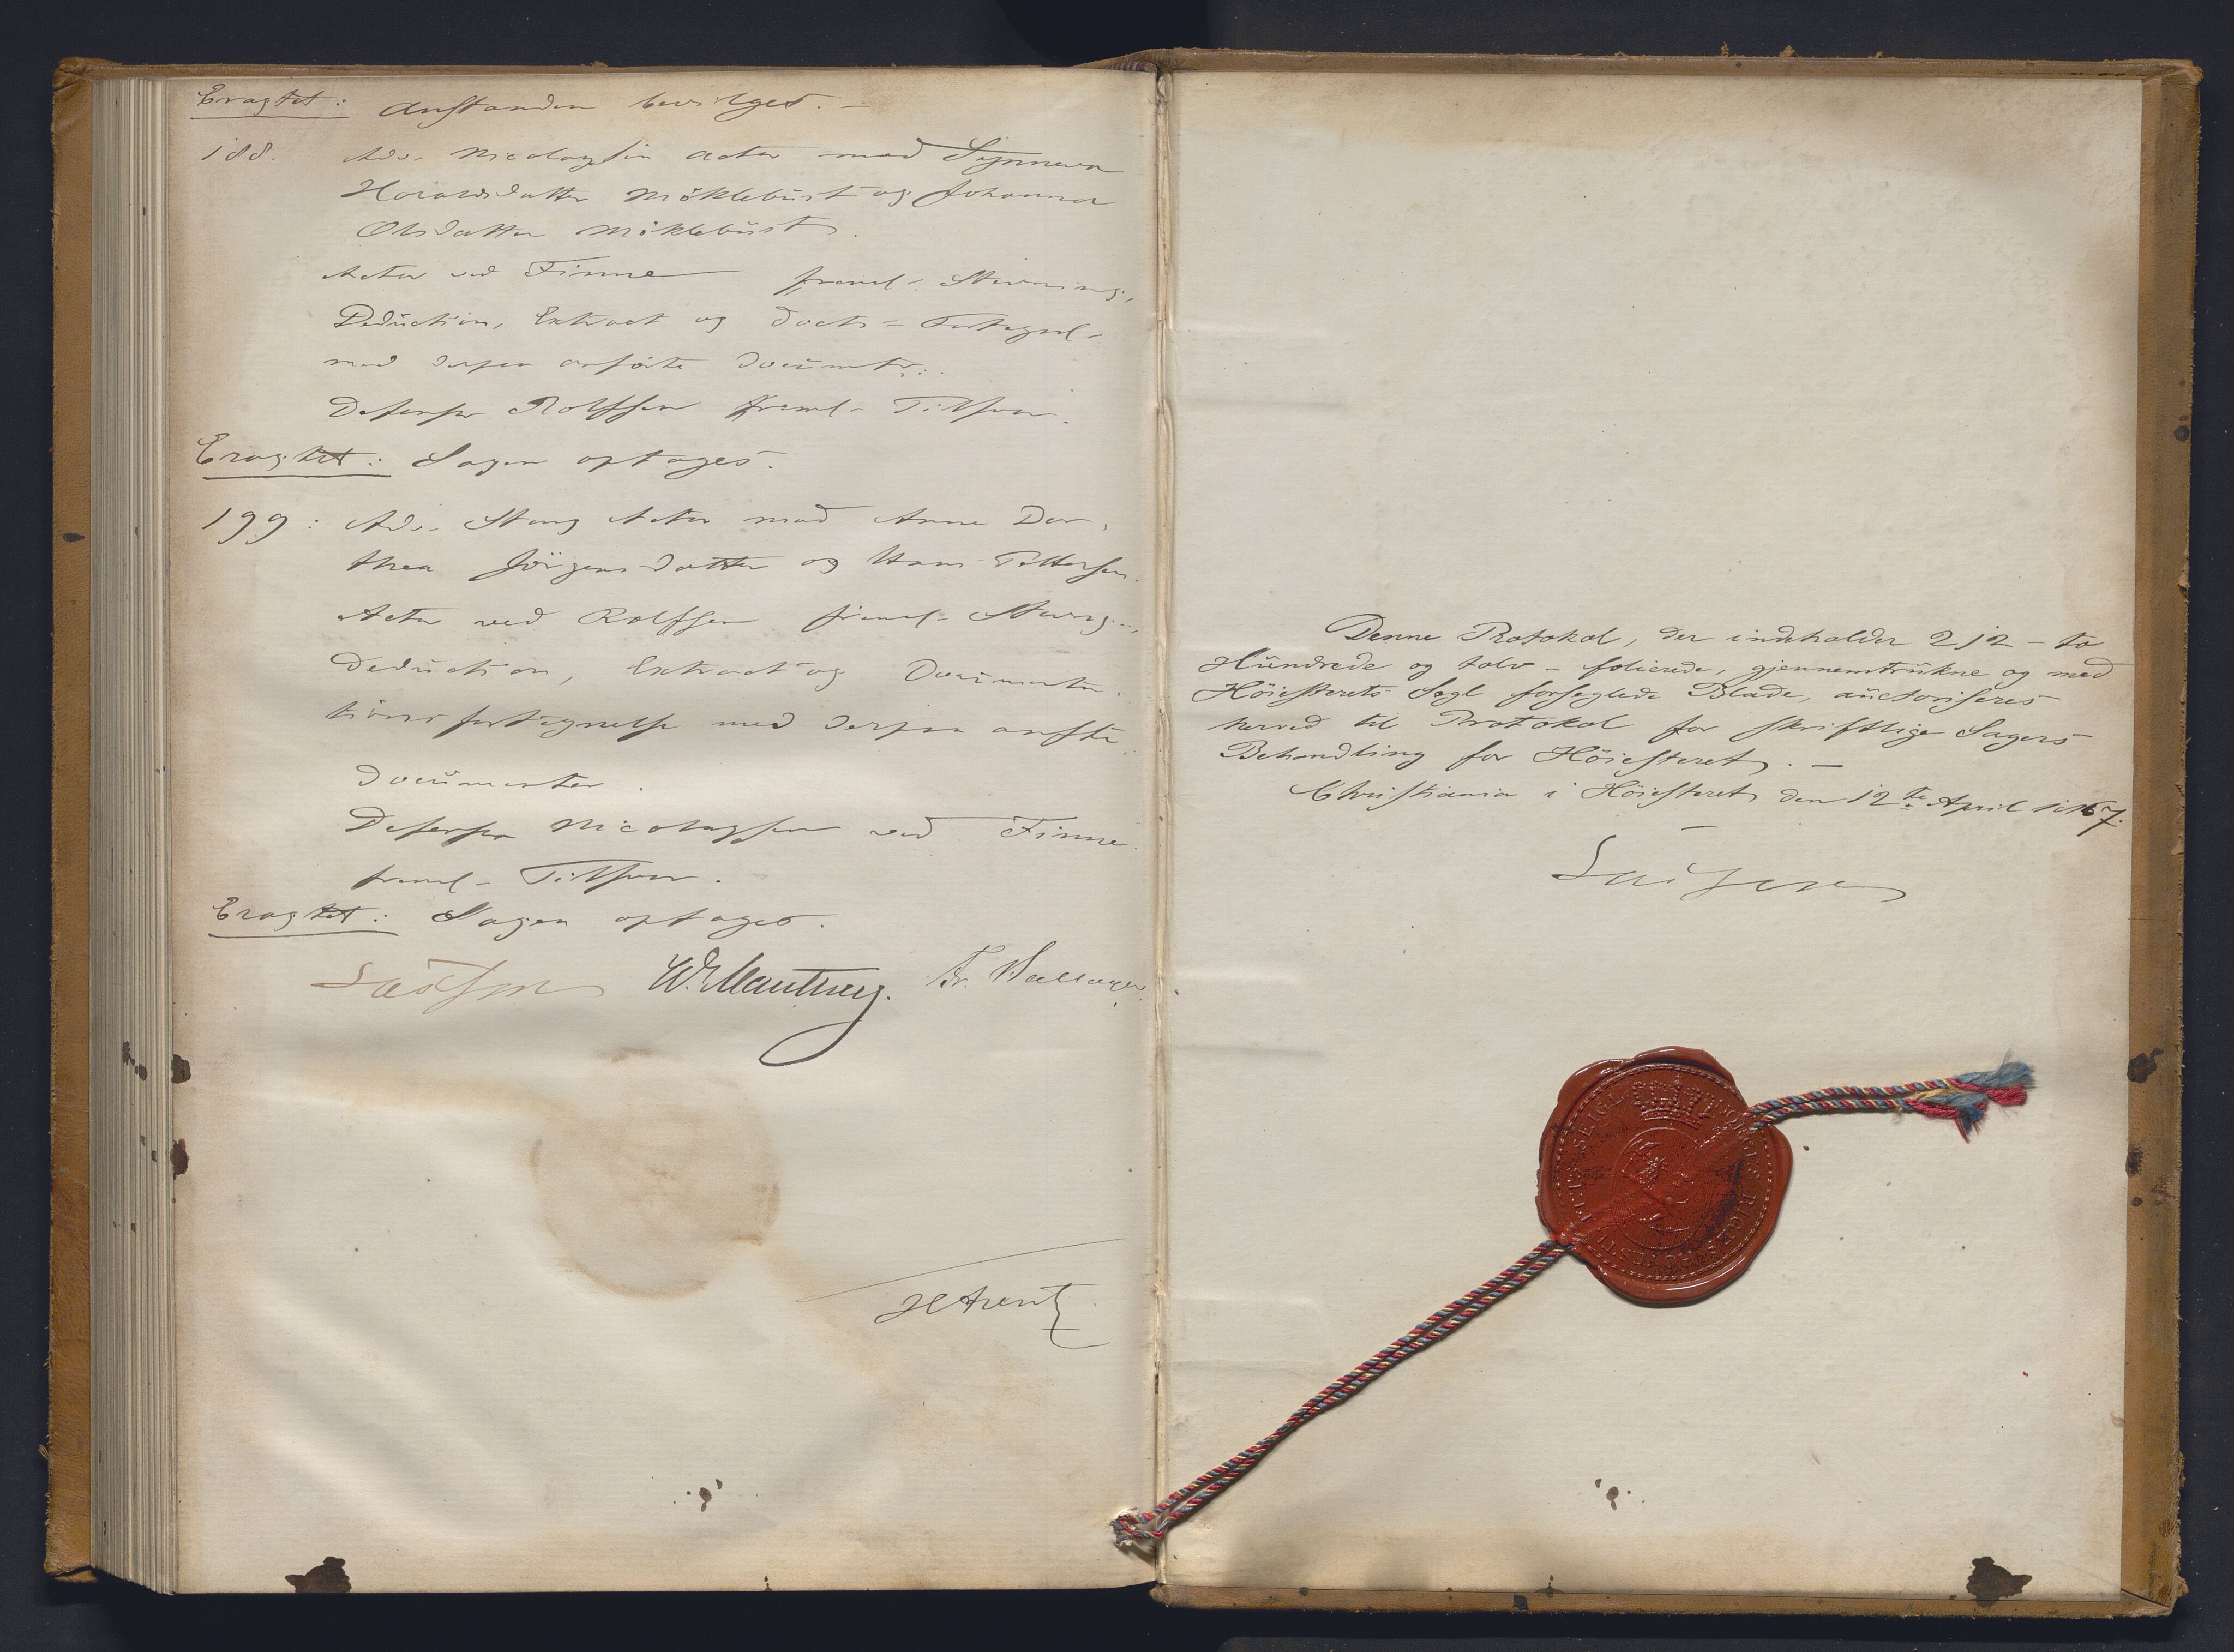 Eragtet: Anstanden bevilges. –
188. Adv. Nicolaysen Actor mod Synneva
Haraldsdatter Möklebust og Johanna
Olsdatter Möklebust.
Actor ved Finne freml. Stevning,
Deduction, Extract og Docts-Fortegnel-
med derpaa anførte Documtr:.
Defensor Rolffsen freml- Tilsvar.
Eragtet: Sagen optages.
199: Adv. Stang Actor mod Anne Dor,
thea Jörgensdatter og Hans Pettersen.
Actor ved Rolffsen freml- Stevng..,
Deduction, Extract og Documenta-
tionsfortegnelse med derpaa anfte
Documenter.
Defensor Nicolaysen ved Finne
freml- Tilsvar.
Eragtet: Sagen optages.
Lasson W. Manthey. Fr. Hallager
Denne Protokol, der indholder 212 – to
Hundrede og tolv – folierede, gjennemtrukne og med
Höiesterets Segl forseglede Blade, auctoriseres
herved til Protokol for skriftlige Sagers
Behandling for Höiesteret. –
Christiania i Höiesteret den 12te April 1867.
Lasson
NORGES RIGES HÖIESTERETS SEIGL